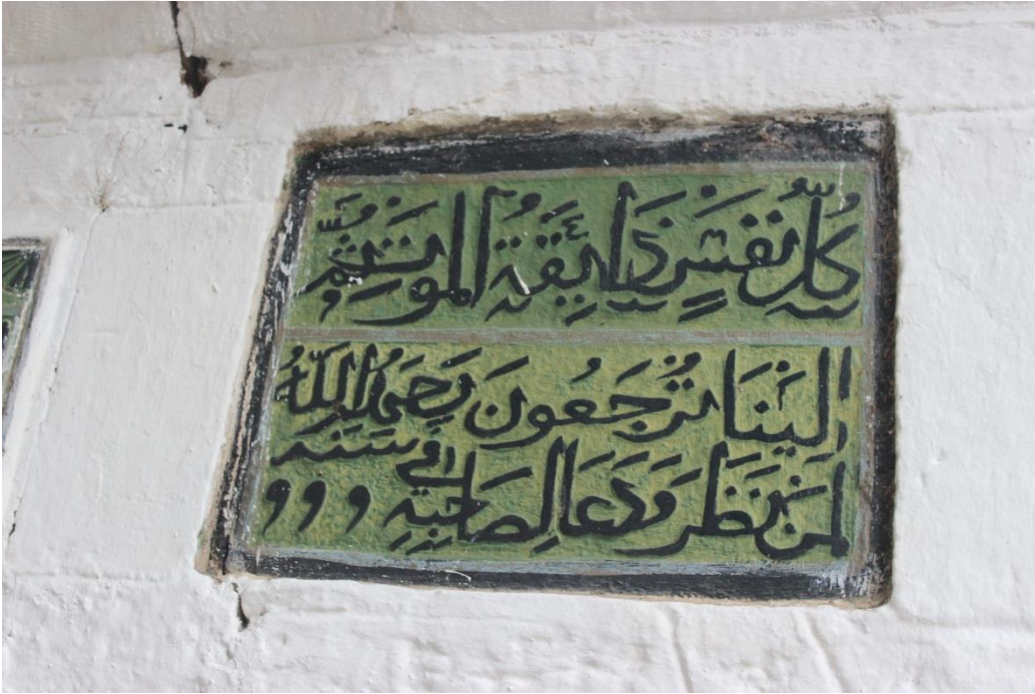 كُلُّ نَفْسٍ ذَائِقَةُ الْمَوْتِ ثُمَّ
إِلَيْنَا تُرْجَعُونَ رَحِمَ اللَّهُ
لِمَنْ نَظَرَ وَدَعَا لِصَاحِبِهِ فِي سَنَة